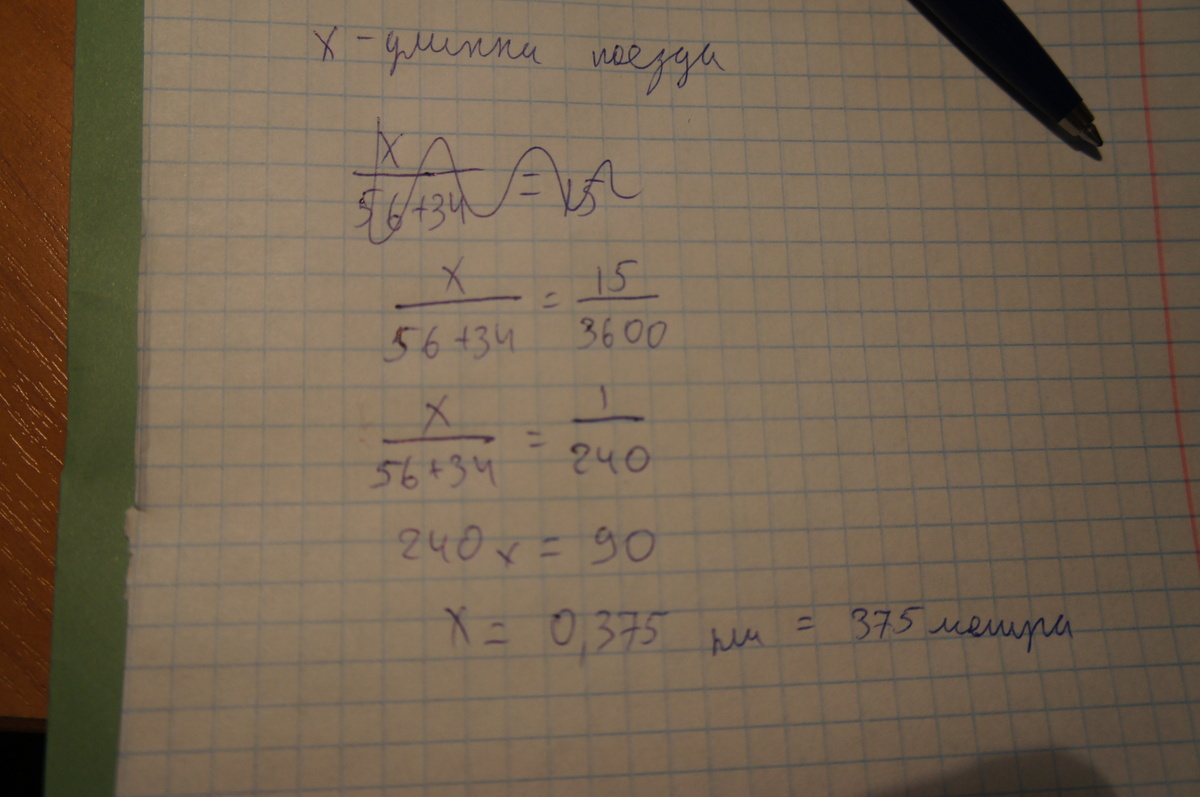 x - длинна поезда
x / 56+34 = 15
x / 56+34 = 15 / 3600
x / 56+34 = 1 / 240
240x = 90
x = 0,375 км = 375 метра